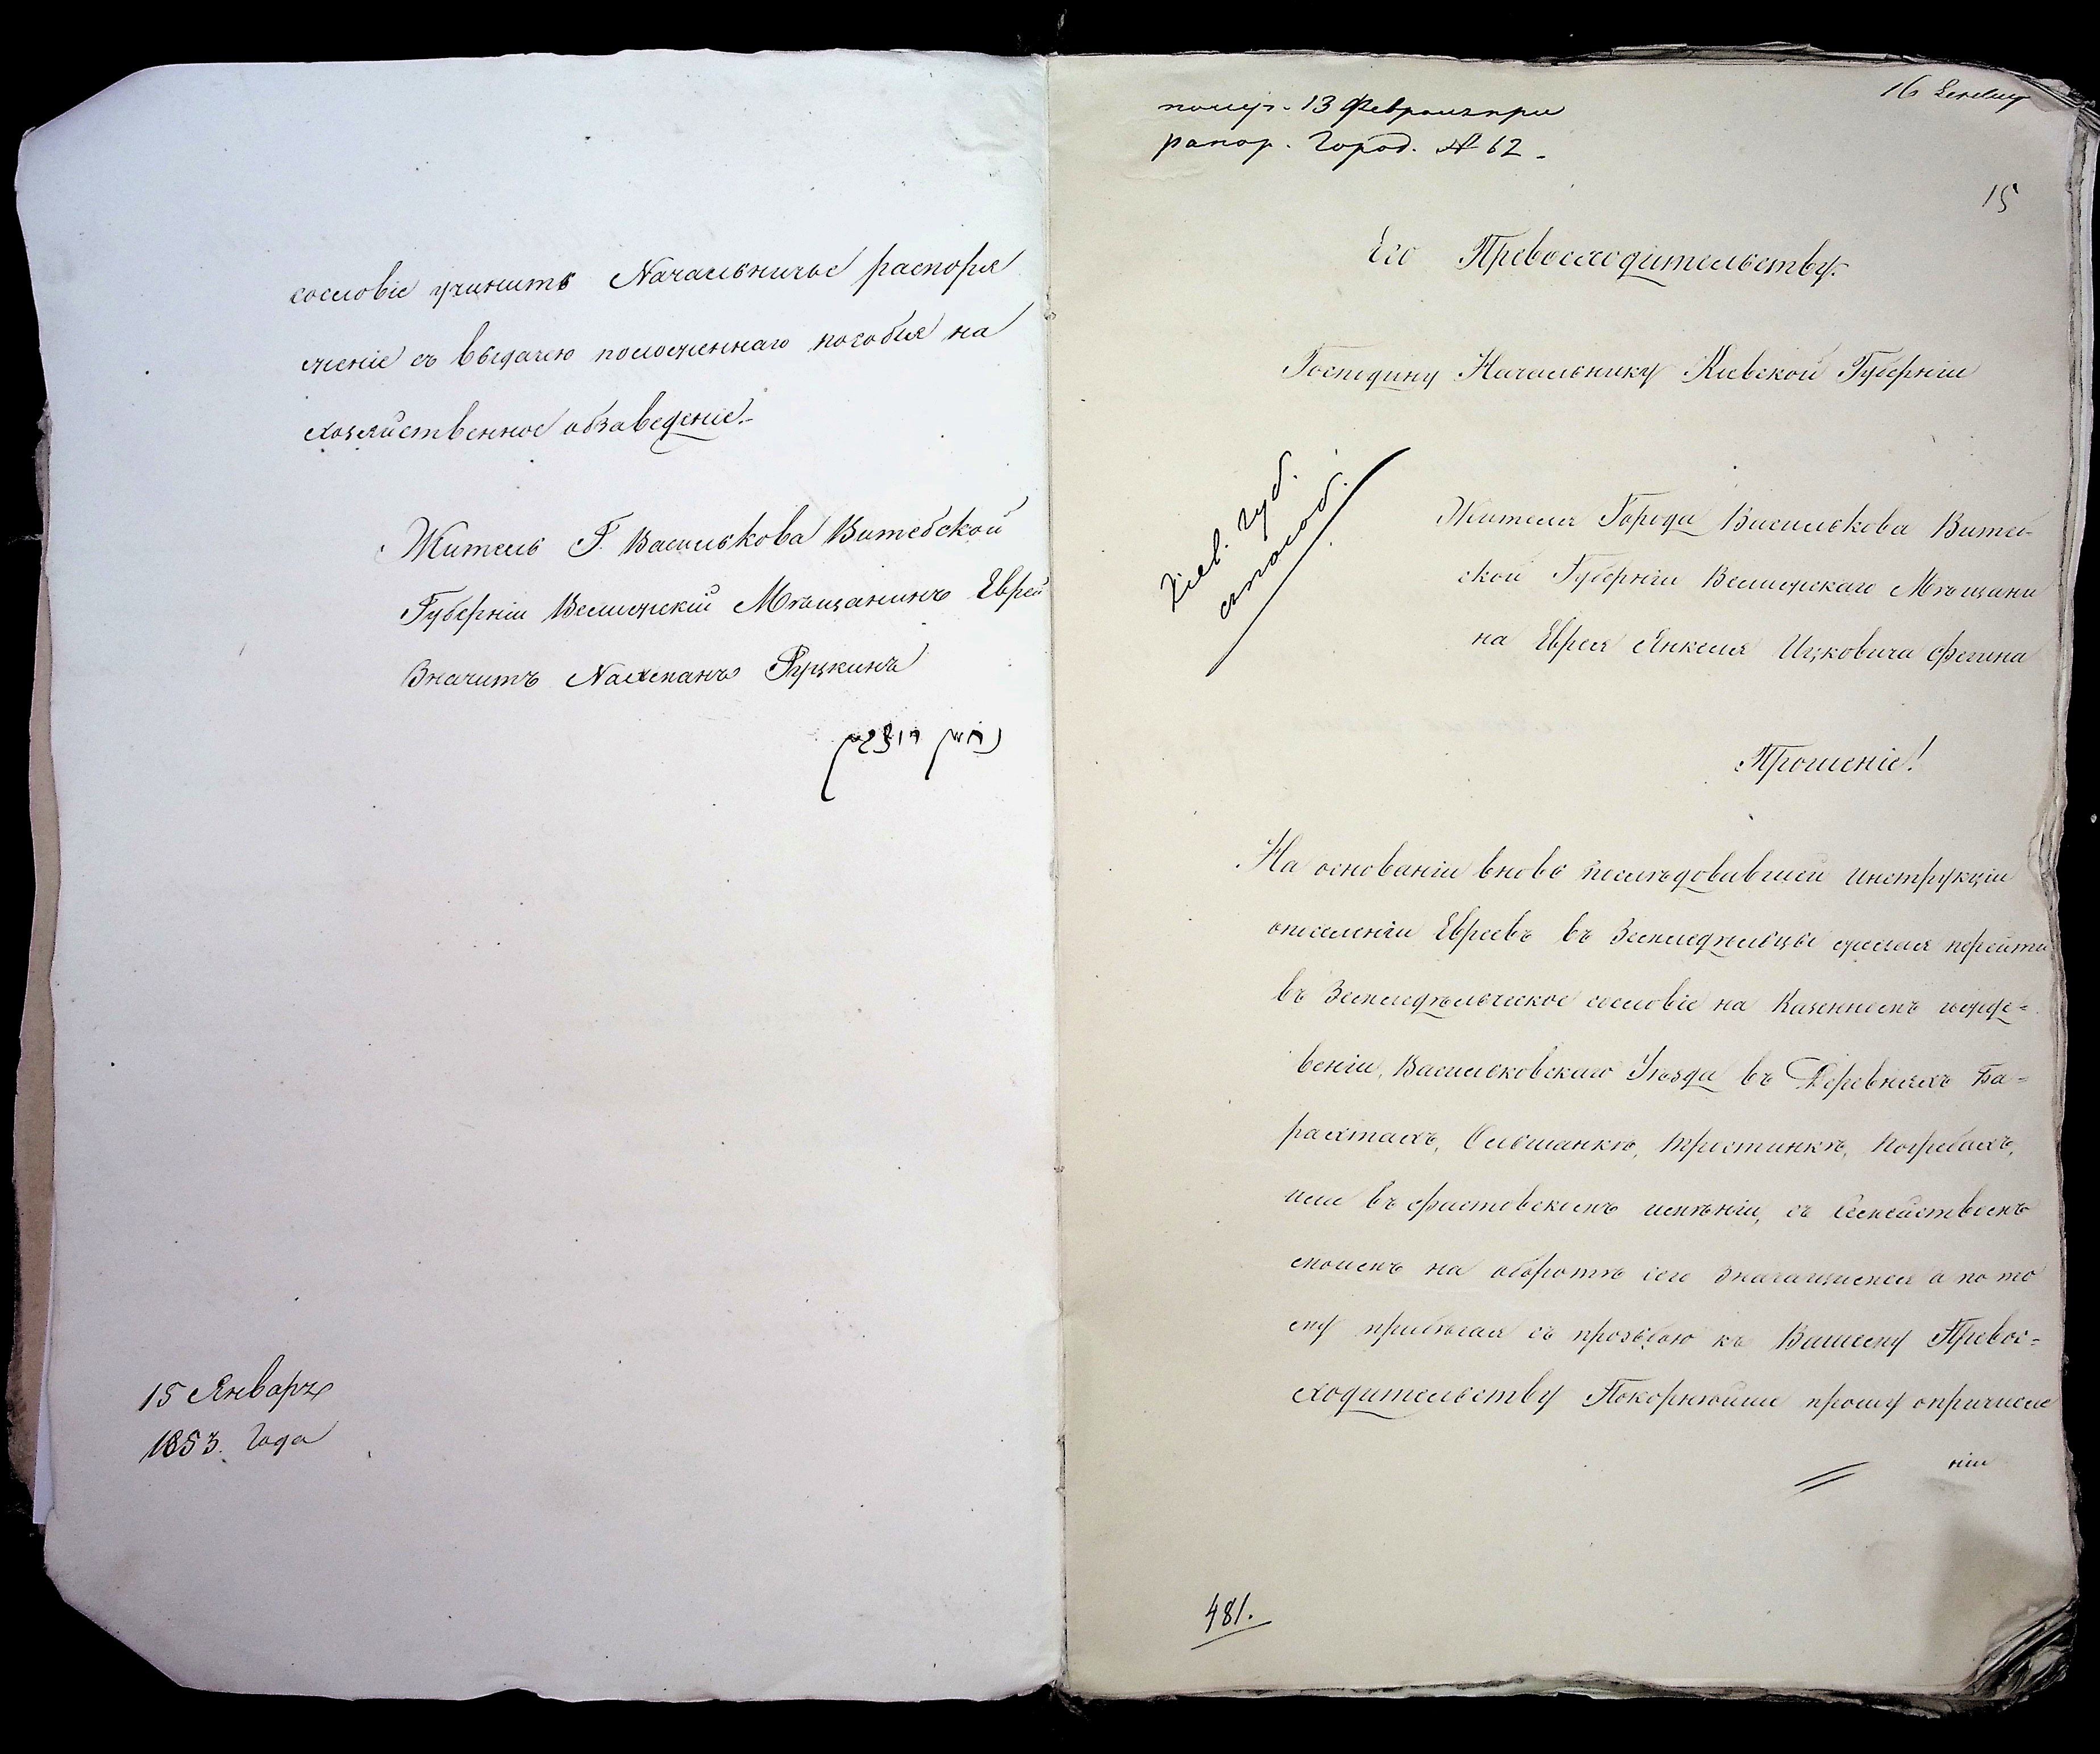 сословіе учинить Начальничье распоря
женіе съ выдачею положеннаго пособія на
хозяйственное обзаведеніе.-
Житель Г. Василькова Витебской
Губерніи Велижскій Мѣщанинъ Еврей
Значитъ Нахманъ Пуцкинъ
15 Января
1853. Года
получ. 13 Февраля при
рапор. Город. № 62.
15
Его Превосходительству
Господину Начальнику Кіевской Губерніи
Кіев. Губ.
Жителя Города Василькова Витеб-
ской Губерніи Велижскаго Мѣщани
на Еврея Янкеля Ицковича Фегина
Прошеніе!
На основаніи вновь послѣдовавшей инструкціи
опоселеніи Евреевъ въ Земледѣльцы желая перейти
въ Земледѣльческое сословіе на Казенномъ иждe=
веніи, Васильковскаго Уѣзда въ Деревняхъ Ба=
рахтахъ, Ольшанкѣ, Тростинкѣ, Погребахъ,
или въ Фастовскомъ имѣніи, съ Семействомъ
моимъ на оборотѣ сего значащимся а по то
му прибѣгая съ прозьбою къ Вашему Превос=
ходительству Покорнѣйше прошу опричисле
ніи
481.